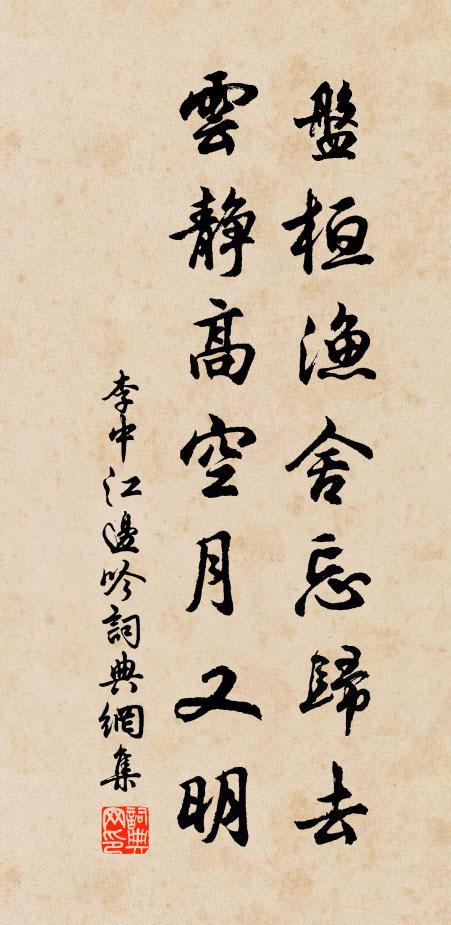 盤桓漁舍忘歸去
雲靜高空月又明
李中江邊吟詞典網集
詞典
网印